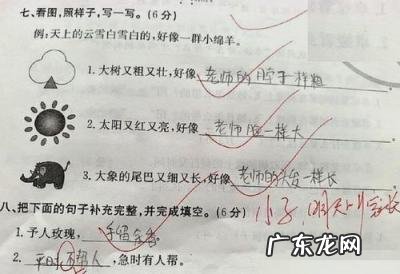 七、看图，照样子，写一写。(6分)
例：天上的云雪白雪白的，好像一群小绵羊。
1. 大树又粗又壮，好像 老师的脖子一样粗
2. 太阳又红又亮，好像 老师脸一样大
3. 大象的尾巴又细又长，好像 老师的头发一样长
小子 明天叫家长
八、把下面的句子补充完整，并完成填空。(6分)
1. 予人玫瑰， 手留余香。
2. 平时 帮人 ，急时有人帮。
广东龙网